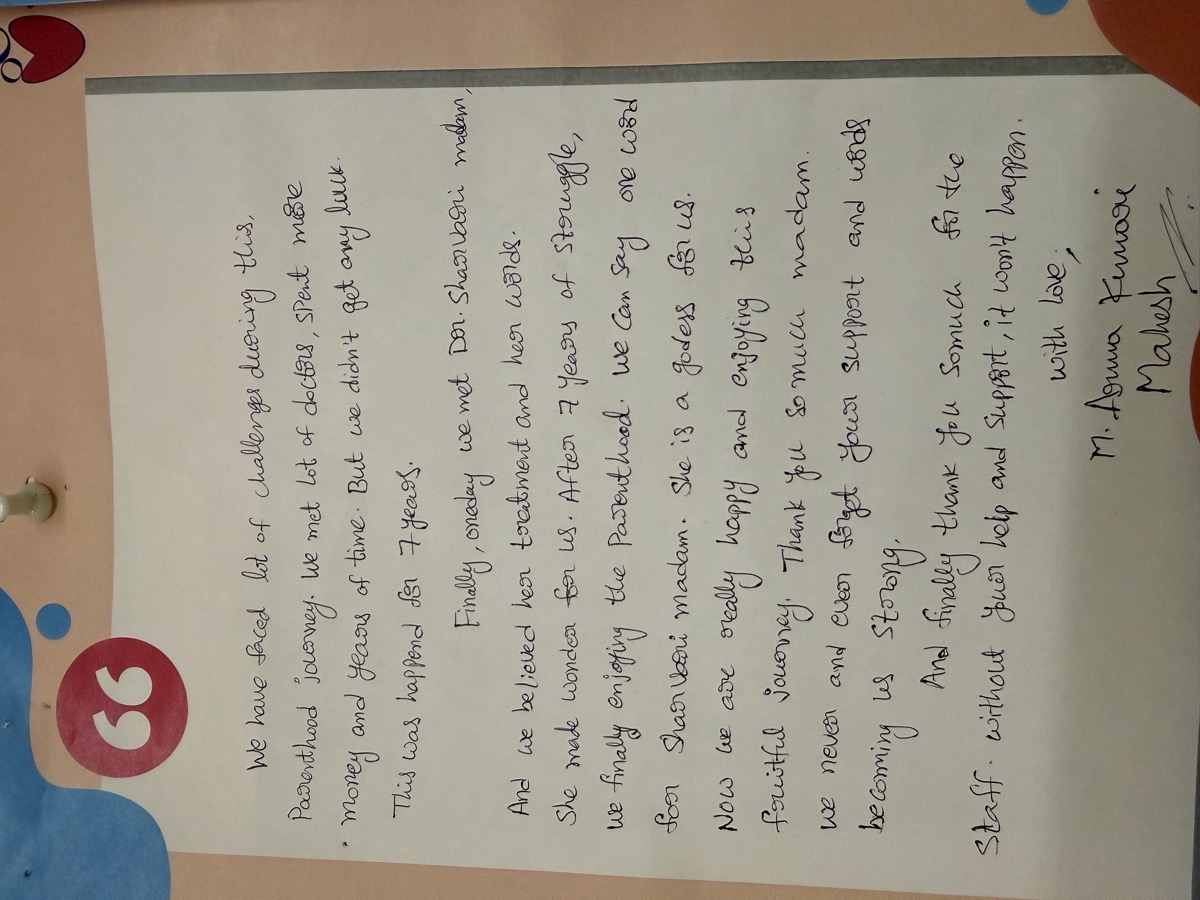 We have faced lot of challenges during this,
Parenthood journey. We met lot of doctors, spent more
money and years of time. But we didn't get any luck.
This was happend for 7 years.
Finally, oneday we met Dr. Sharvari madam,
And we believed her treatment and her words.
She made wonder for us. After 7 years of struggle,
we finally enjoying the Parenthood. we can say one word
for Sharvari madam. She is a godess for us.
Now we are really happy and enjoying this
fruitful journey. Thank you so much madam.
we never and ever forget your support and words
becoming us strong.
And finally thank you somuch for the
staff. without your help and support, it won't happen.
with love,
M. Aruna Kumari
Mahesh